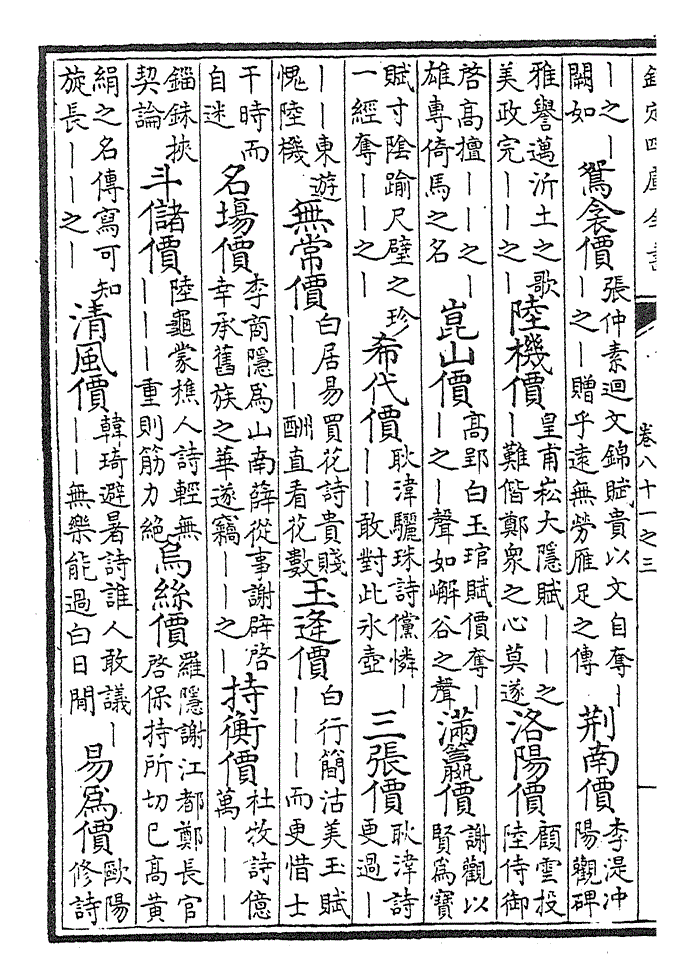 欽定四庫全書
卷八十一之三
丨之丨
闕如
鴛衾價
張仲素迴文錦賦貴以文自奪丨
丨之丨贈乎遠無勞雁足之傳
荆南價
李湜冲
陽觀碑
雅譽邁沂土之歌
美政完丨丨之丨
陸機價
皇甫崧大隱賦丨丨之
丨難偕鄭衆之心莫遂
洛陽價
顧雲投
陸侍御
啓高擅丨丨之丨
雄專倚馬之名
崑山價
高郢白玉琯賦價奪丨
丨之丨聲如嶰谷之聲
滿籯價
謝觀以
賢爲寶
賦寸陰踰尺璧之珍
一經奪丨丨之丨
希代價
耿湋驪珠詩儻憐丨
丨丨敢對此氷壺
三張價
耿湋詩
更過丨
丨丨東遊
愧陸機
無常價
白居易買花詩貴賤
丨丨丨酬直看花數
玉逢價
白行簡沽美玉賦
丨丨丨而更惜士
干時而
自迷
名場價
李商隱爲山南薛從事謝辟啓
幸承舊族之華遂竊丨丨之丨
持衡價
杜牧詩億
萬丨丨丨
錙銖挾
契論
斗儲價
陸龜蒙樵人詩輕無
丨丨丨重則筋力絶
烏絲價
羅隱謝江都鄭長官
啓保持所切已高黄
絹之名傳寫可知
旋長丨丨之丨
清風價
韓琦避暑詩誰人敢議丨
丨丨無樂能過白日閒
易爲價
歐陽
修詩